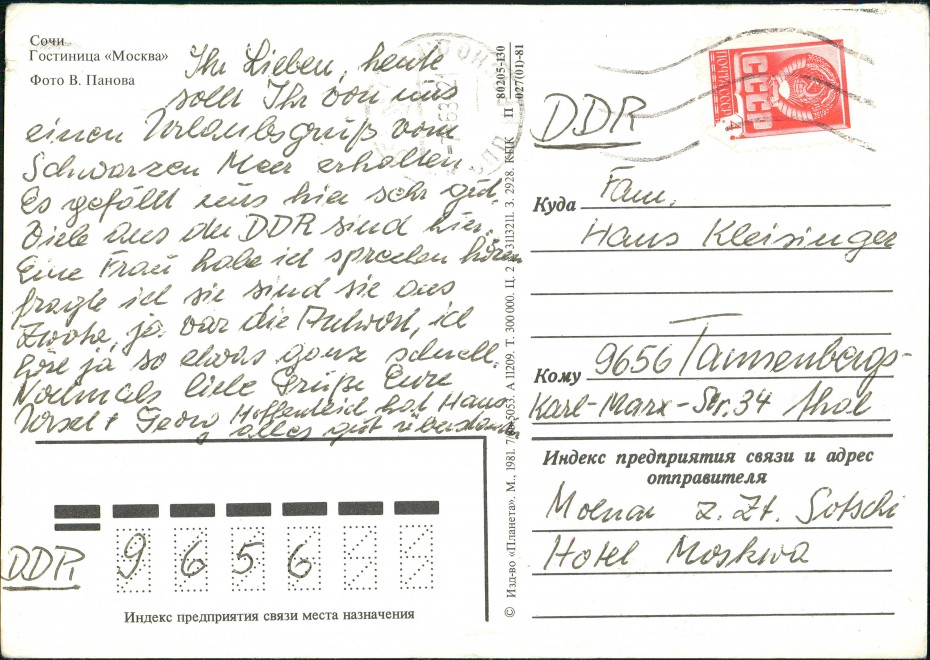 Сочи
Гостиница «Москва»
Фото В. Панова
Ihr Lieben, heute
sollt Ihr von uns
einen Urlaubsgruß vom
Schwarzen Meer erhalten.
Es gefällt uns hier sehr gut.
Viele aus der DDR sind hier.
Eine Frau habe ich sprechen hören
fragte ich sie sind sie aus
ja war die Antwort, ich
höre ja so etwas ganz schnell.
Nochmals liebe Grüße Eure
Ursel + Georg Hoffentlich hat Hans
alles gut überstanden
DDR, 9656
Индекс предприятия связи места назначения
© Изд-во «Планета». М., 1981. А 11209. Т. 300 000. З. 2928. КПК
П 80205-130
027(01)-81
ПОЧТА СССР
СССР
4
DDR
Куда Fam.
Hans Kleisinger
Кому 9656 Tannenbergs-
Karl-Marx-Str. 34 thal
Индекс предприятия связи и адрес
отправителя
Molnar z. Zt. Sotschi
Hotel Moskwa